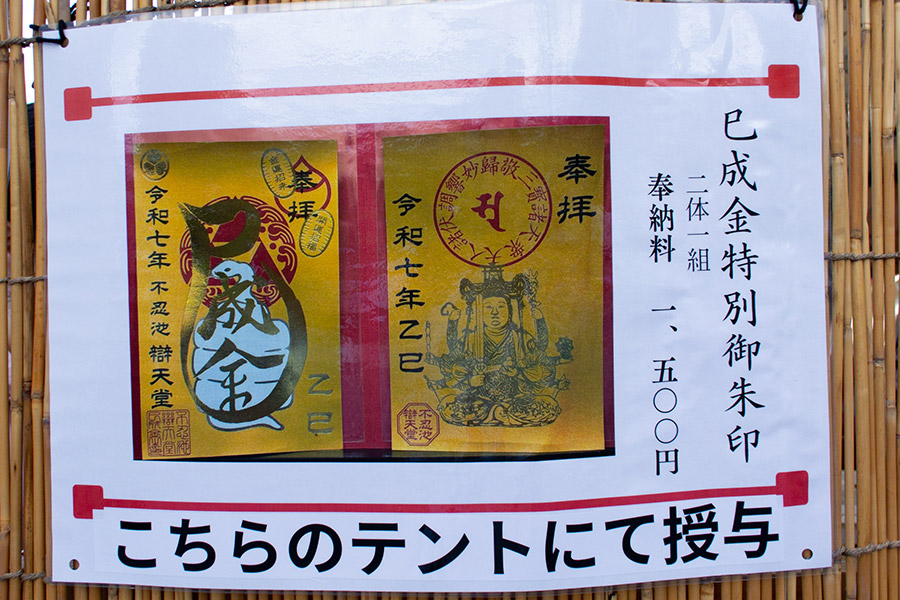 巳成金特別御朱印
二体一組
奉納料 一、五〇〇円
奉拝
令和七年乙巳
不忍池
辯天堂
奉拝
巳成金
乙巳
令和七年 不忍池 辯天堂
こちらのテントにて授与